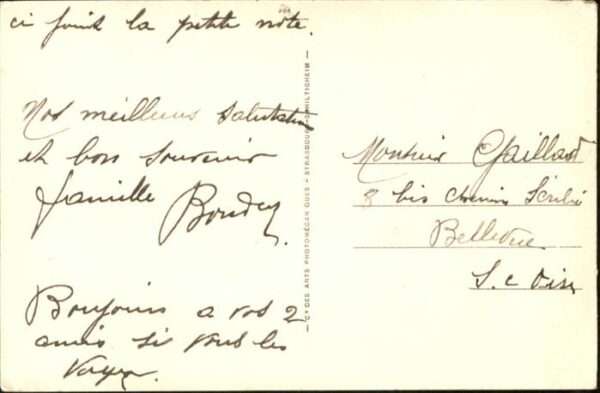 ci joint la petite note.
Nos meilleurs salutations
et bons souvenir
famille
Bonjours a vos 2
amis si vous les
voyez.
Cie DES ARTS PHOTOMÉCANIQUES - STRASBOURG-SCHILTIGHEIM
Monsieur Gaillard
8 bis chemin Scribe
Bellevue
S. e Oise